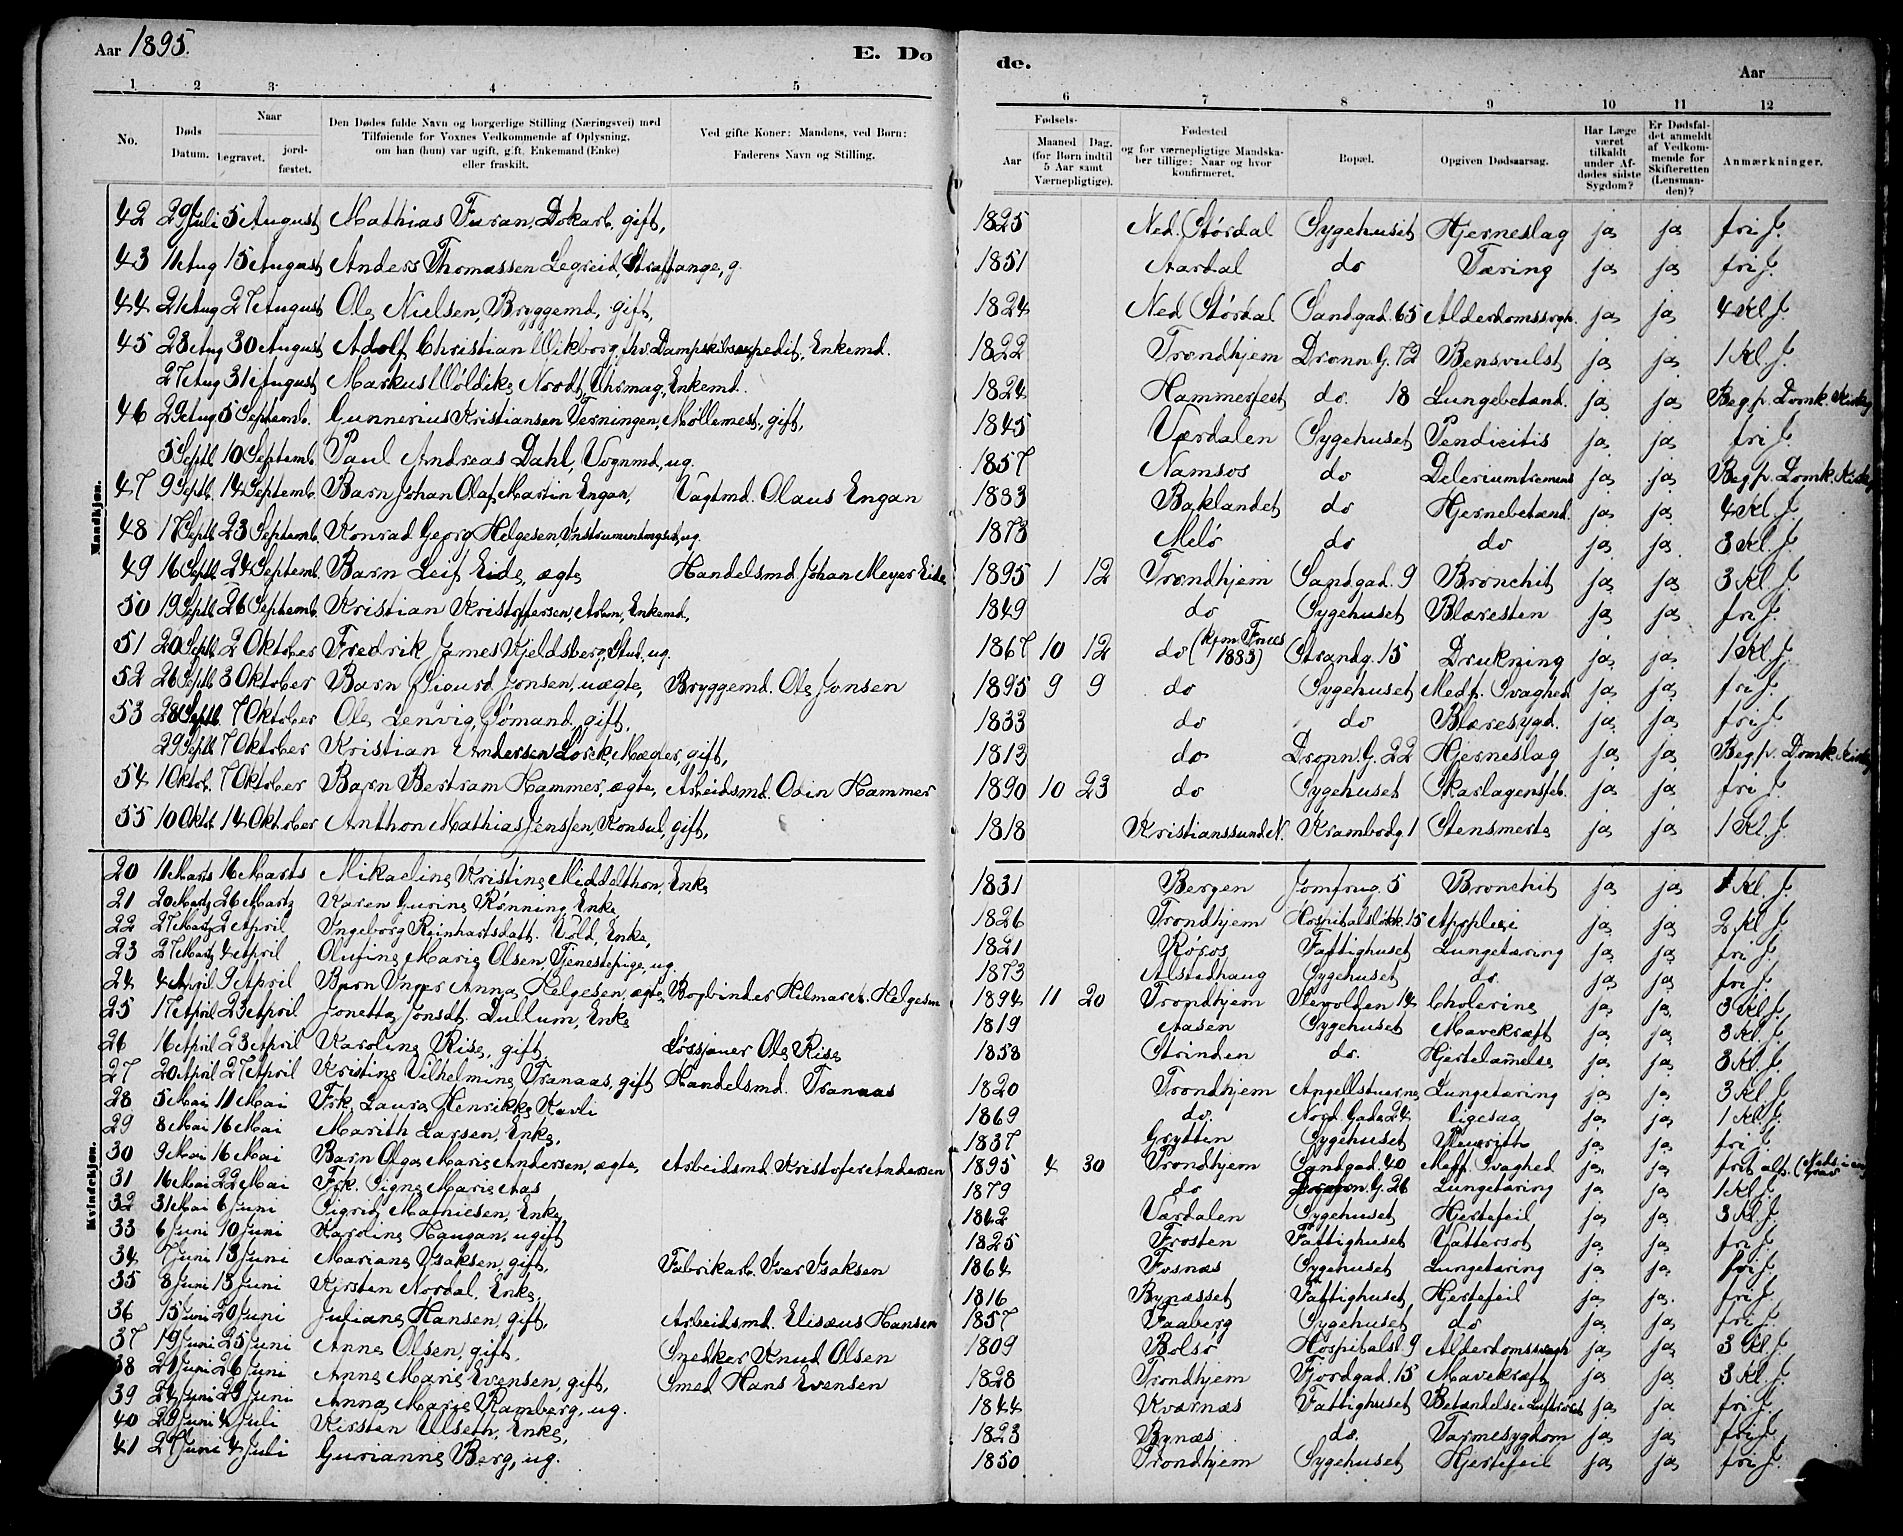 Aar 1895.
E. Døde.
Aar
1 2 3 4 5 6 7 8 9 10 11 12
No.
Døds Datum.
Naar
begravet.
jordfæstet.
Den Dødes fulde Navn og borgerlige Stilling (Næringsvei) med
Tilføiende for Voxnes Vedkommende af Oplysning,
om han (hun) var ugift, gift, Enkemand (Enke)
eller fraskilt.
Ved gifte Koner: Mandens, ved Børn:
Faderens Navn og Stilling.
Fødsels-
Aar
Maaned Dag.
(for Børn indtil
5 Aar samt
Værnepligtige).
Fødested
og for værnepligtige Mandska-
ber tillige: Naar og hvor
konfirmeret.
Bopæl.
Opgiven Dødsaarsag.
Har Læge
været
tilkaldt
under Af-
dødes sidste
Sygdom?
Er Dødsfal-
det anmeldt
af Vedkom-
mende for
Skifteretten
(Lensman-
den)?
Anmærkninger.
Mandkjøn.
42 29 Juli 5 August Mathias Furan, Dokarb, gift, 1825 Ned. Størdal Sygehuset Hjerneslag ja ja fri J.
43 11 Aug 15 August Anders Thomassen Legreid, Straffange, g. 1851 Aardal do Tæring ja ja fri J.
44 21 Aug 27 August Ole Nielsen, Bryggemd, gift, 1824 Ned Størdal Sandgad. 65 Alderdomssvgh. ja ja 4 Kl J.
45 28 Aug 30 August Adolf Christian Wikborg, fhv. Dampskibsexpedit, Enkemd. 1822 Trondhjem Dronn. G. 72 Bensvulst ja ja 1 Kl J.
27 Aug 31 August Markus Wöldike Nordt, Uhrmag, Enkemd. 1824 Hammerfest do. 18 Lungebetænd. ja ja Beg p. Domk. Kirkeg
46 29 Aug 5 Septemb. Gunnerius Kristiansen Terningen, Møllemest, gift, 1845 Værdalen Sygehuset Pendicitis ja ja fri J.
5 Septb 10 Septemb. Paul Andreas Dahl, Vognmd, ug. 1857 Namsos do Deleriumtremens ja ja Beg p. Domk. Kirkeg
47 9 Septb. 14 Septemb. Barn Johan Olaf Martin Engan, Vagtmd. Olaus Engan 1883 Baklandet do Hjernebetænd. ja ja 4 Kl. J.
48 17 Septb 23 Septemb. Konrad Georg Helgesen, ug. 1873 Melø do do ja ja 3 Kl. J.
49 16 Septb 24 Septemb. Barn Leif Eide, ægte, Handelsmd Johan Meyer Eide 1895 1 12 Trondhjem Sandgad. 9 Bronchit ja ja 3 Kl. J.
50 19 Septb 26 Septemb. Kristian Kristoffersen, Arbm, Enkemd, 1849 do Sygehuset Blæresten ja ja fri J.
51 20 Septb 2 Oktober Fredrik James Kjeldsberg, Stud, ug. 1867 10 12 do (kfm. 1883) Strandg. 15 Drukning ja ja 1 Kl J.
52 26 Septb 3 Oktober Barn Sigurd Jonsen, uægte, Bryggemd. Ole Jonsen 1895 9 9 do Sygehuset Medf. Svaghed ja ja fri J.
53 28 Septb. 7 Oktober Ole Lenvig, Sømand, gift, 1833 do do Blæresygd. ja ja fri J.
29 Septb 7 Oktober Kristian Andersen Lorck, Mægler, gift, 1813 do Dronn. G. 22 Hjerneslag ja ja Beg p. Domk. Kirkeg
54 1 Oktob. 7 Oktober Barn Bertram Hammer, ægte, Arbeidsmd. Odin Hammer 1890 10 23 do Sygehuset Skarlagensfeb. ja ja fri J
55 10 Oktob 14 Oktober Anthon Mathias Jenssen, Konsul, gift, 1818 Kristianssund N. Krambodg. 1 Stensmerte ja ja 1 Kl. J.
Kvindekjøn.
20 11 Marts 16 Marts Mikaeline Kristine Middelthon, Enke 1831 Bergen Jomfrug. 5 Bronchit ja ja 1 Kl. J.
21 20 Marts 26 Marts Karen Gurine Rønning Enke 1826 Trondhjem Hospitalsløkk. 15 Apoplexi ja ja 2 Kl. J.
22 27 Marts 2 April Ingeborg Reinhartsdatt. Vold, Enke, 1821 Røros Fattighuset Lungetæring ja ja fri J.
23 27 Marts 4 April Olufine Marie Olsen, Tjenestepige, ug. 1873 Alstadhaug Sygehuset do. ja ja fri J.
24 4 April 9 April Barn Inger Anna Helgesen, ægte, Bogbinder Hilmar Helgesen 1894 11 20 Trondhjem 14 Cholerine ja ja 3 Kl. J.
25 17 April 23 April Jonetta Jonsdt. Dullum, Enke 1819 Aasen Sygehuset Mavekræft ja ja 3 Kl. J.
26 16 April 23 April Karoline Rise, gift Løssjouer Ole Rise 1858 Strinden do. Hjertelamelse ja ja 3 Kl. J.
27 20 April 27 April Kristine Vilhelmine Tranaas, gift Handelsmd. Tranaas 1820 Trondhjem Angellstuerne Lungetæring ja ja 3 Kl. J.
28 5 Mai 11 Mai Frk. Laura Henrikke Kavli 1869 do. Nord. Gade 24 ligesaa ja ja 1 Kl. J.
29 8 Mai 16 Mai Marith Larsen, Enke, 1837 Grytten Sygehuset Pleurith ja ja fri J.
30 9 Mai 16 Mai Barn Olga Marie Andersen, ægte, Arbeidsmd Kristofer Anderssen 1895 4 30 Trondhjem Sandgad. 40 Medf. Svaghed ja ja fri
31 16 Mai 22 Mai Frk. Signe Marie Aas 1879 do Dronn. G. 26 Lungetæring ja ja 1 Kl. J.
32 31 Mai 6 Juni Sigrid Mathiesen, Enke 1842 Værdalen Sygehuset Hjertefeil ja ja 3 Kl J.
33 6 Juni 10 Juni Karoline Haugan, ugift 1825 Frosten Fattighuset Vattersot ja ja fri J.
34 7 Juni 13 Juni Mariane Isaksen, gift, Fabrikarb. Iver Isaksen 1864 Fosnæs Sygehuset Lungetæring ja ja fri J.
35 8 Juni 13 Juni Kirsten Nordal, Enke, 1816 Bynæsset Fattighuset Hjertefeil ja ja fri J.
36 15 Juni 20 Juni Juliane Hansen, gift, Arbeidsmd. Elisæus Hansen 1857 Faaberg Sygehuset do ja ja fri J.
37 19 Juni 25 Juni Anne Olsen, gift, Snedker Knud Olsen 1809 Bolsø Hospitalsl. 9 Alderdomssvagh ja ja 3 Kl. J.
38 21 Juni 26 Juni Anne Marie Evensen, gift, Smed Hans Evensen 1828 Trondhjem Fjordgad. 15 Mavekræft ja ja 3 Kl. J.
39 24 Juni 29 Juni Anna Marie Ramberg, ug. 1844 Kværnæs Fattighuset Betændelse i Luftrøret ja ja fri J.
40 29 Juni 4 Juli Kirsten Ulseth, Enke, 1823 Bynæs do. Tarmesygdom ja ja fri J.
41 27 Juni 4 Juli Gurianne Berg, ug. 1850 Trondhjem Sygehuset Hjertefeil ja ja fri J.